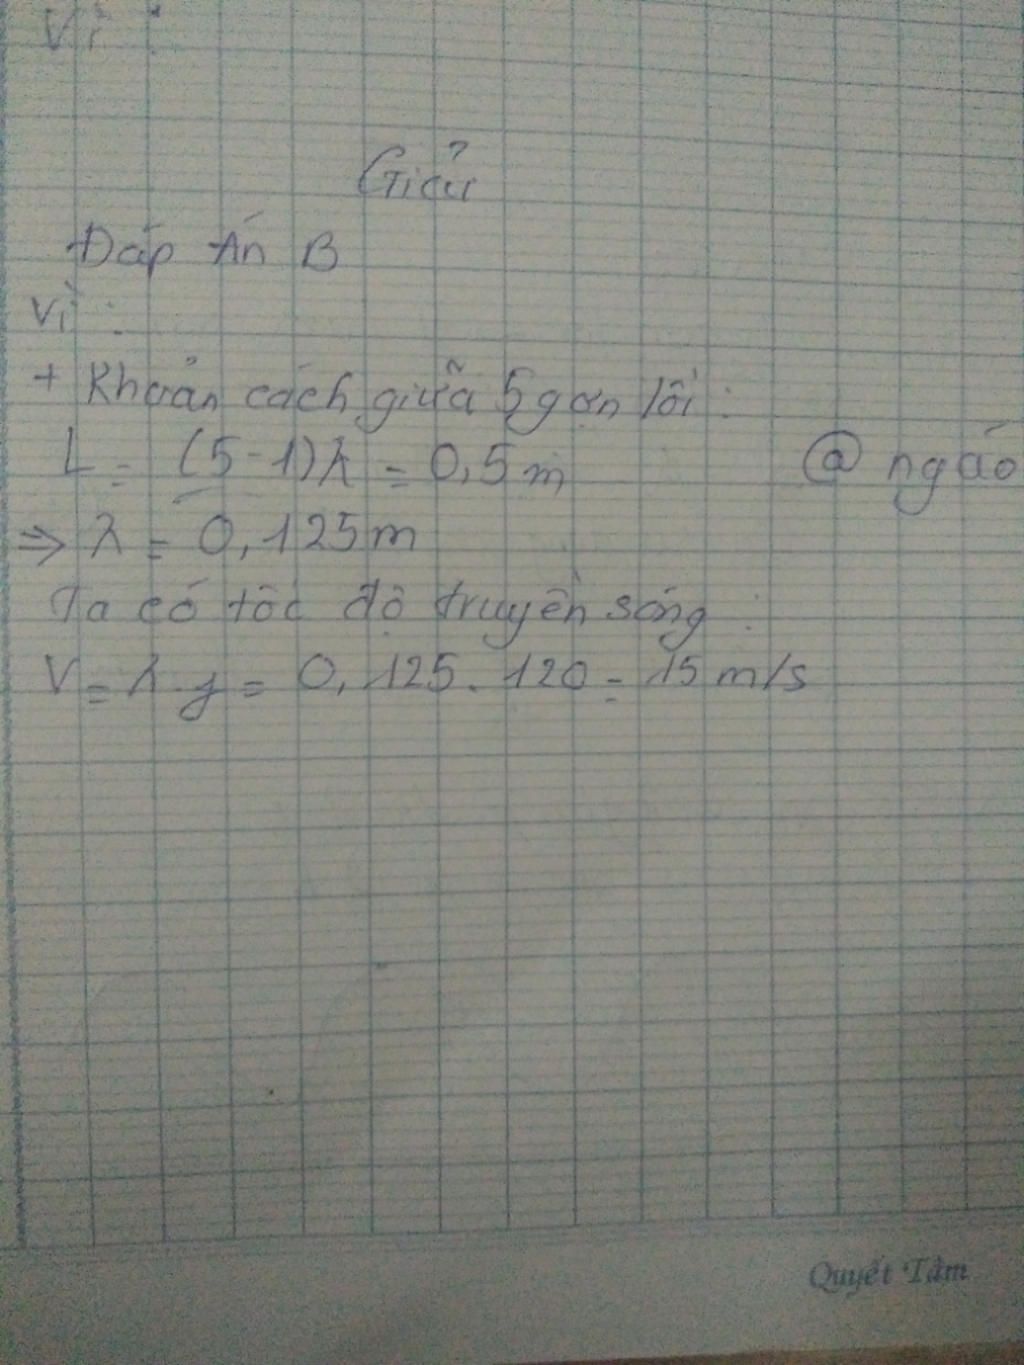 Vì :
Giải
Đáp Án B
Vì :
+ Khoản cách giữa 5 gơn lồi :
L = (5-1)λ = 0,5m
@ ngáo
⇒ λ = 0,125m
Ta có tốc độ truyền sóng :
V = λ.f = 0,125.120 = 15m/s
Quyết Tâm